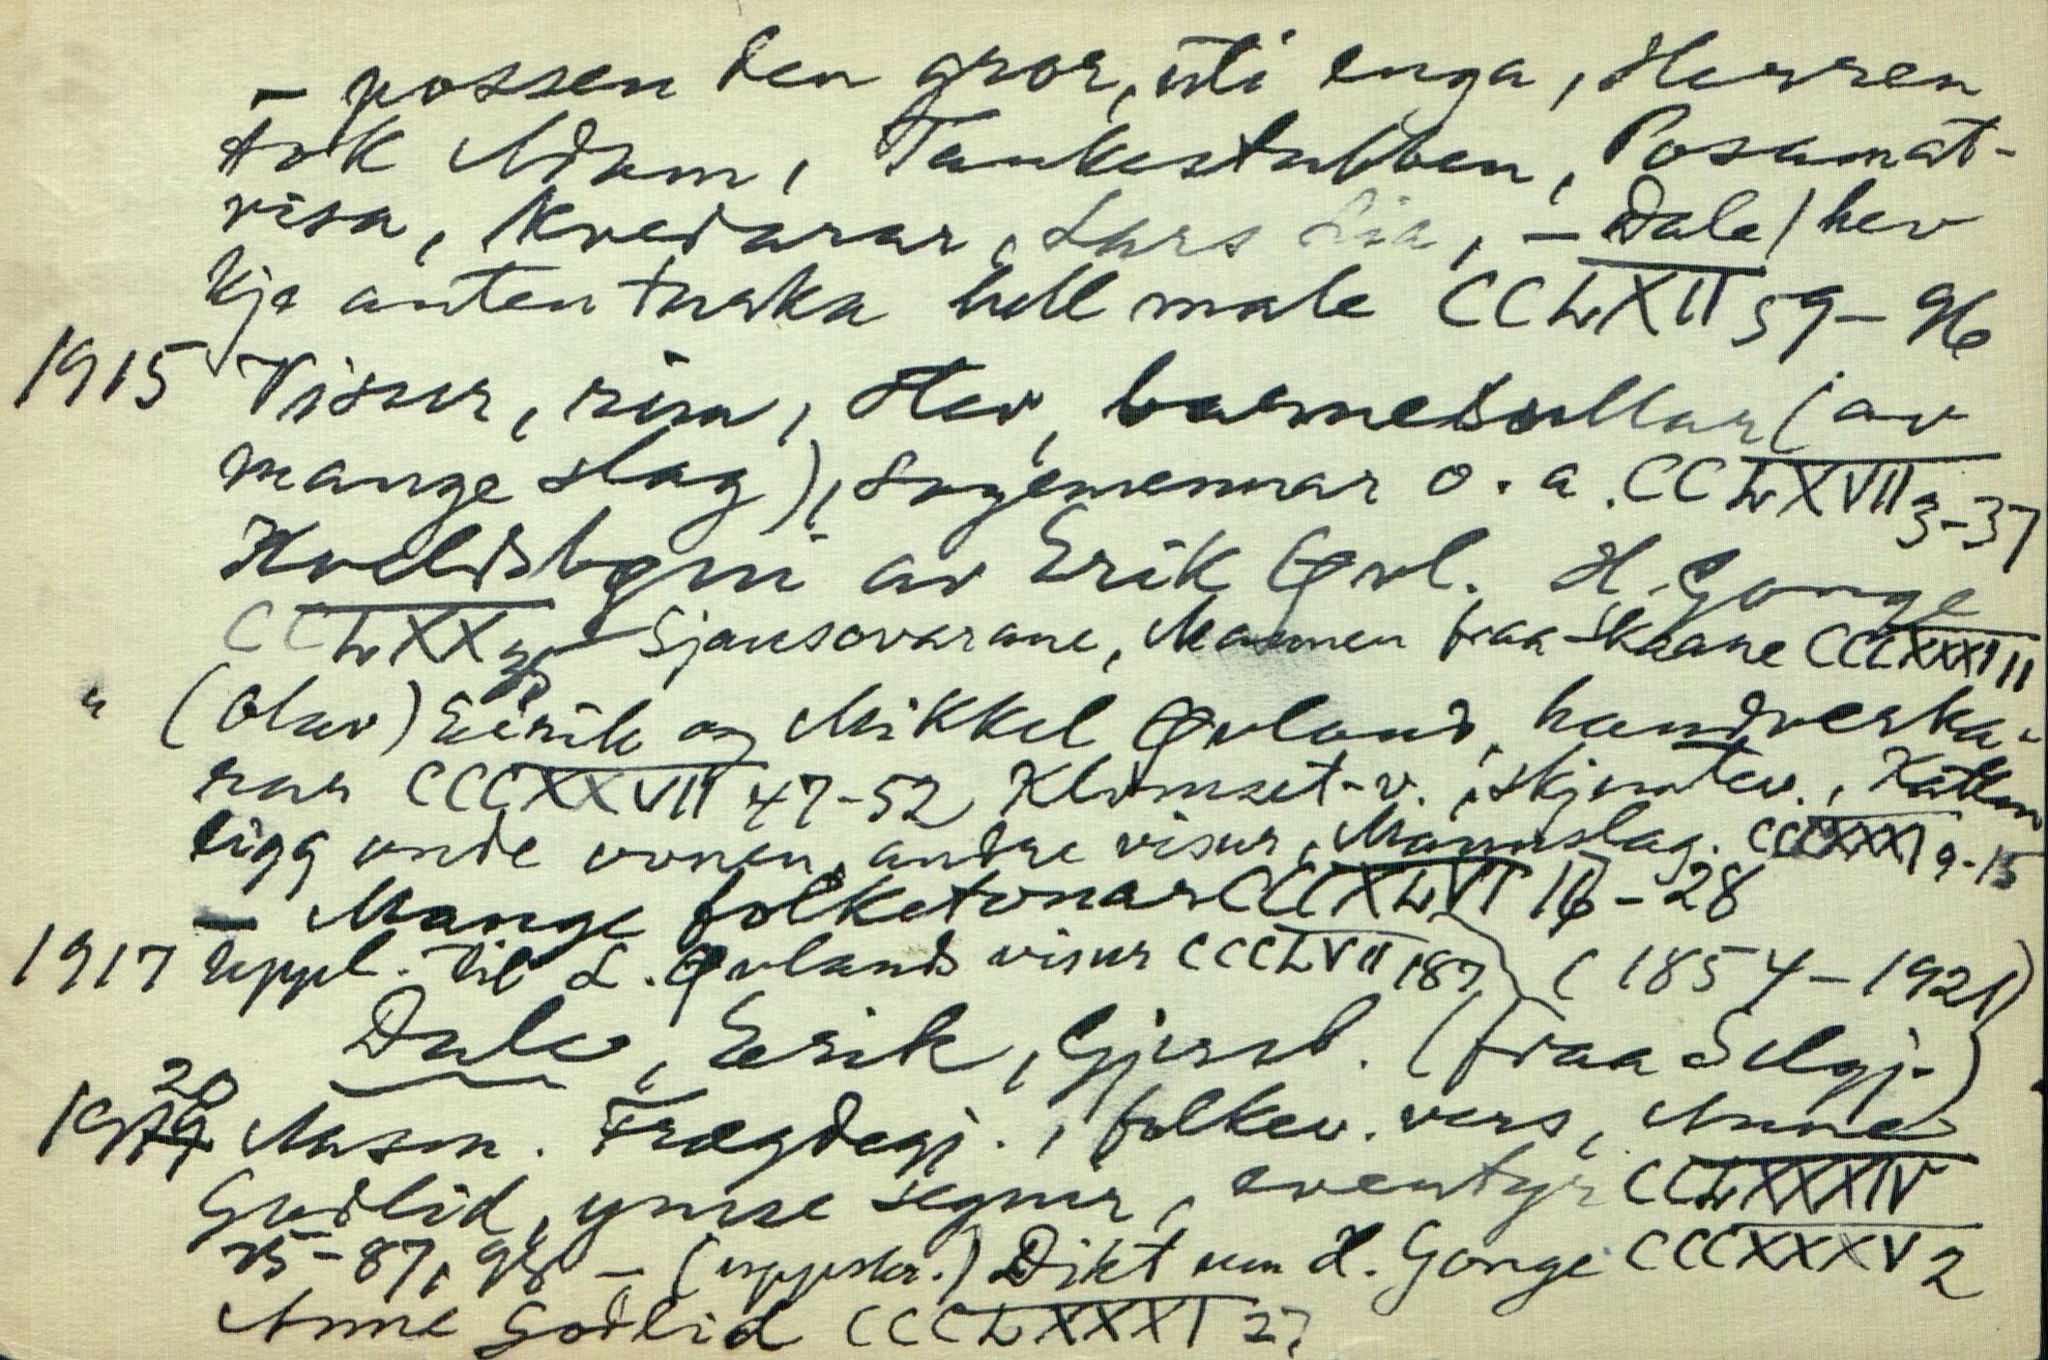 – possen den gror, uti enga, Herren
tok Adam, Tankestubben, Posamat-
visa, Kvedarar, Lars Lia, – Dale / hev
kje anten turka hell male CCLXII 59–96
1915 Visur, rim, stev, barnesullar (av
mange slag), Sogemennar o. a. CCLXVII 3–37
Kveldsbøni av Erik Øvl. H. Gonge
CCLXX 35 – Sjausovarane, Mannen fraa Skaane CCCXXXI 11
" (Olav) Eirik og Mikkel Øvland, handverka-
rar CCCXXVII 47–52 Klomset-v., Skjemtev., Katten
ligg unde vonen, andre visur, Mannslag. CCCXXXI 9-15
– Mange folketonar CCCXLVI 16–28
1917 Uppl. til L. Øvlands visur CCCLVII 187 (1854–1921)
Dale, Eirik, Gjerst. (fraa Selgj.)
1920 Ausm. Frægdegj., folkev. vers, Anne
Godlid, ymse segnir, eventyr CCLXXXIV
25–87, 98 – (uppskr.) Dikt um H. Gonge CCCXXXV 2
Anne Godlid CCCLXXXI 27